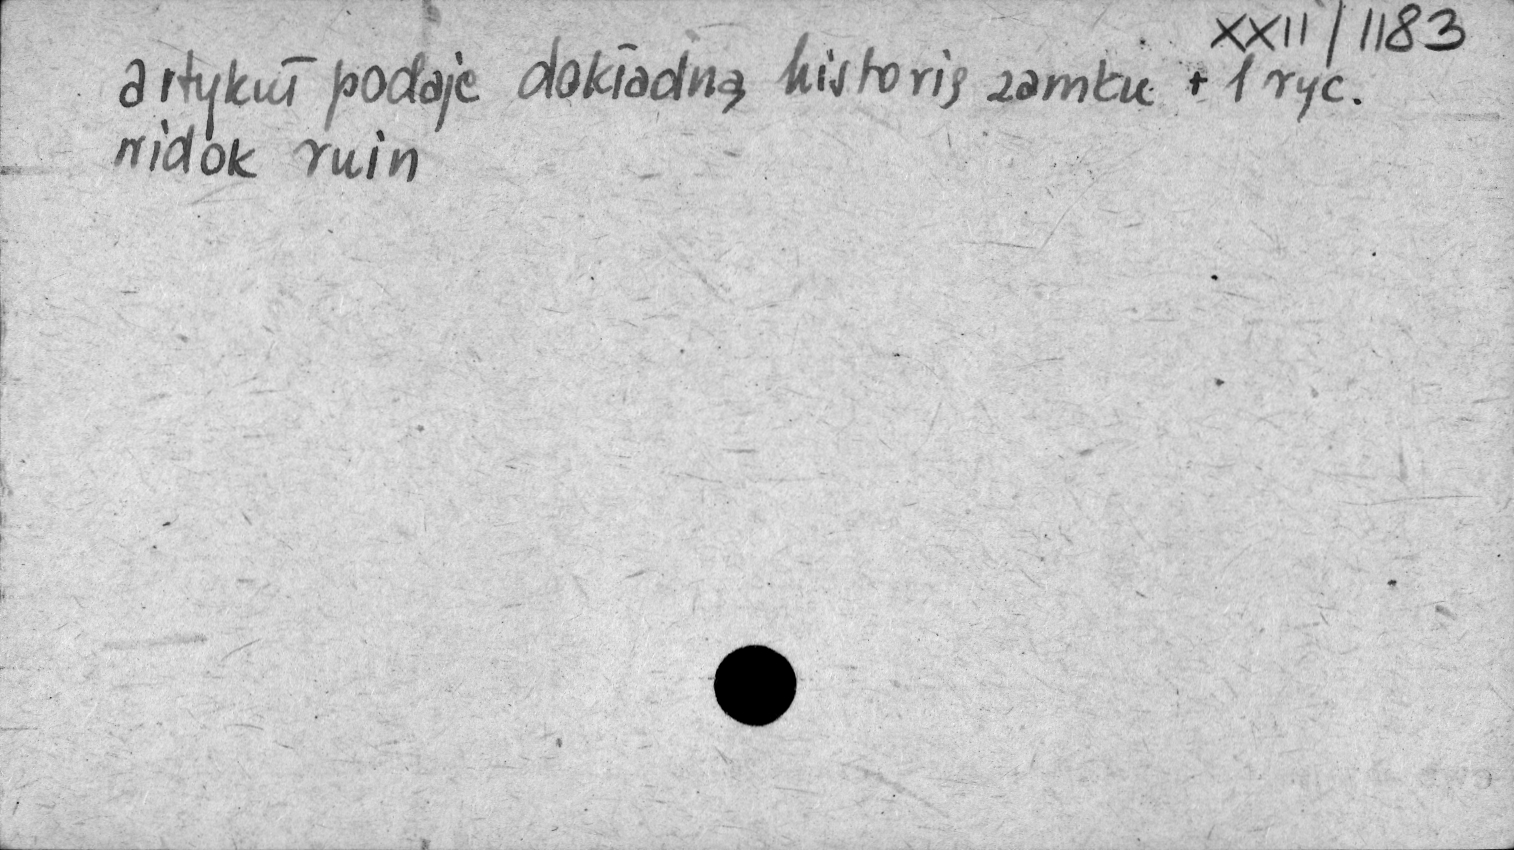 XXII/1183
artykuł podaje dokładną historię zamku + 1 ryc.
widok ruin